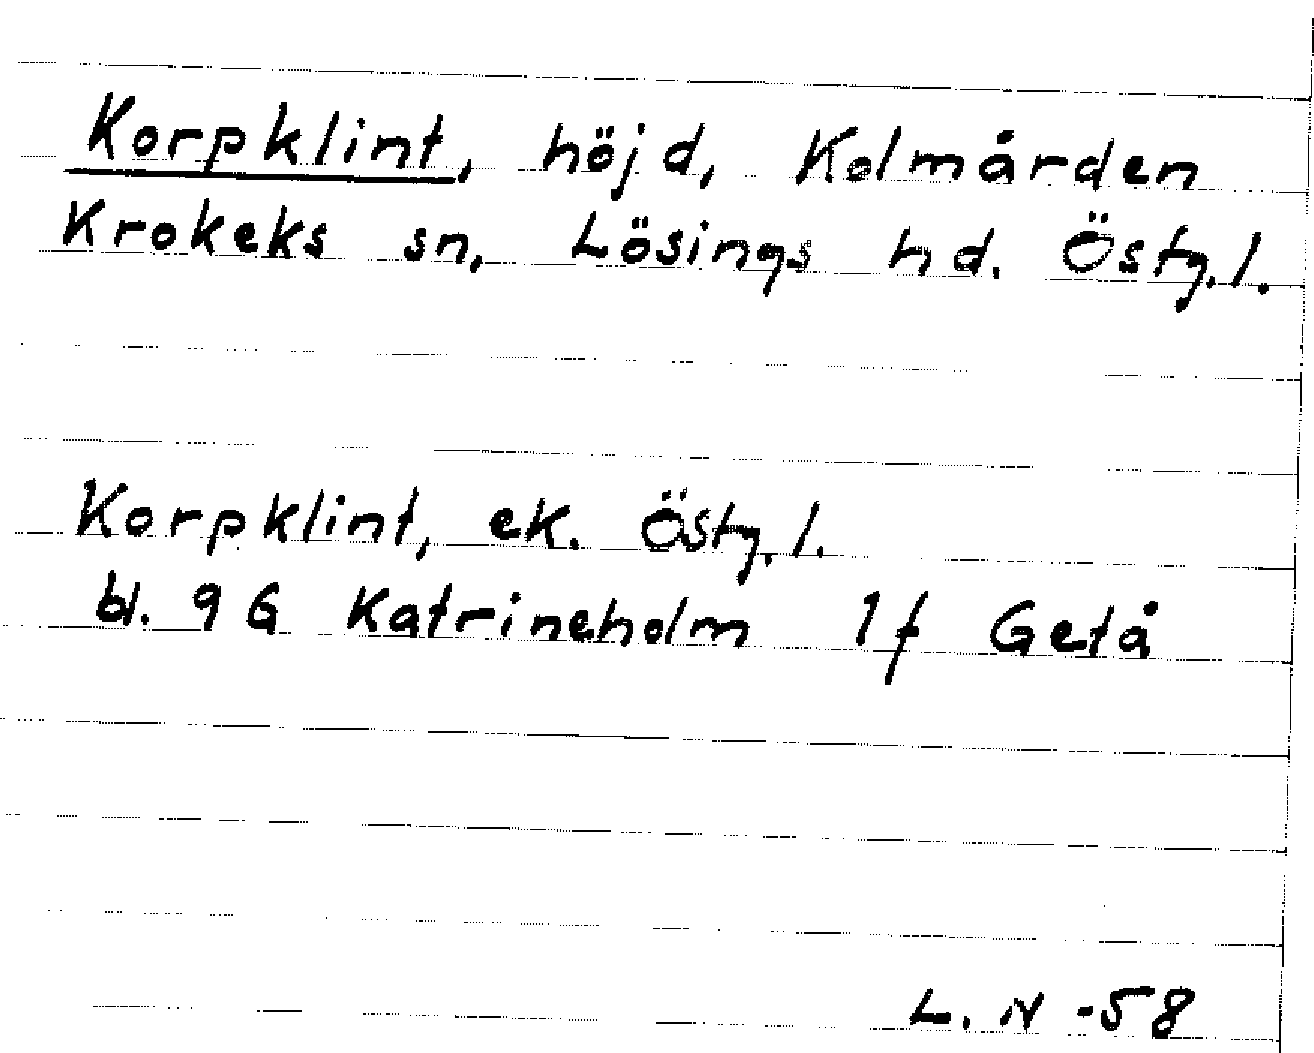 Korpklint, höjd, Kolmården
Krokeks sn, Lösings hd. Östg.l.
Korpklint, ek. Östg.l.
bl. 9G Katrineholm 1f Getå
L.N -58